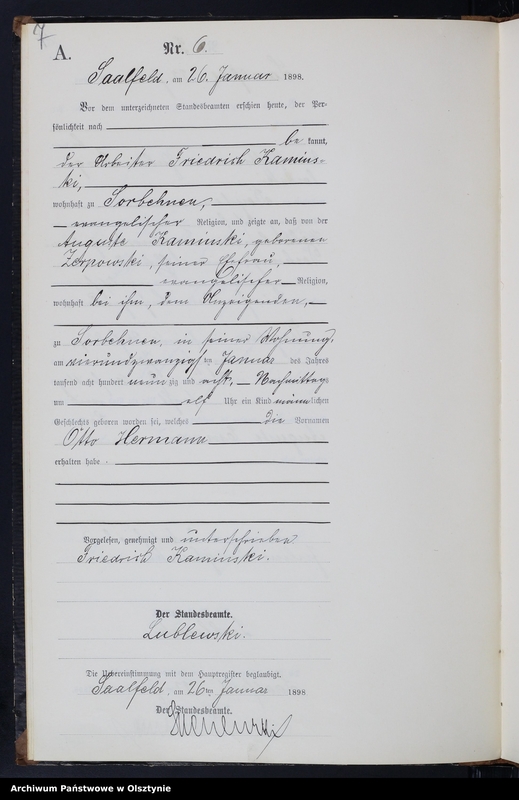 7
A.
Nr. 6.
Saalfeld, am 26. Januar 1898.
Vor dem unterzeichneten Standesbeamten erschien heute, der Per-
sönlichkeit nach
be kannt,
der Arbeiter Friedrich Kamins-
ki,
wohnhaft zu Sorbehnen,
evangelischer Religion, und zeigte an, daß von der
Auguste Kaminski, geborenen
, seiner Ehefrau,
evangelischer Religion,
wohnhaft bei ihm, dem Anzeigenden,
zu Sorbehnen, in seiner Wohnung,
am vierundzwanzigsten Januar des Jahres
tausend acht hundert neun zig und acht, Nachmittags
um elf Uhr ein Kind männlichen
Geschlechts geboren worden sei, welches die Vornamen
Otto Hermann
erhalten habe.
Vorgelesen, genehmigt und unterschrieben
Friedrich Kaminski.
Der Standesbeamte.
Lublewski.
Die Uebereinstimmung mit dem Hauptregister beglaubigt.
Saalfeld, am 26ten Januar 1898
Der Standesbeamte.
Archiwum Państwowe w Olsztynie